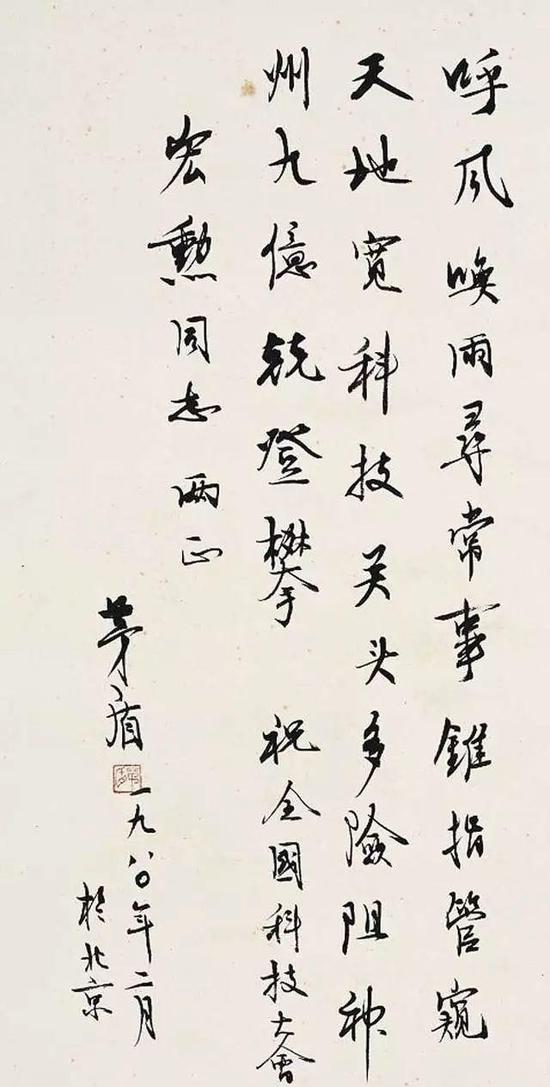 呼风唤雨寻常事錐指管窥
天地宽科技关头多險阻神
州九億兢登攀 祝全國科技大會
宏勲同志两正
茅盾
一九八〇年二月
於北京